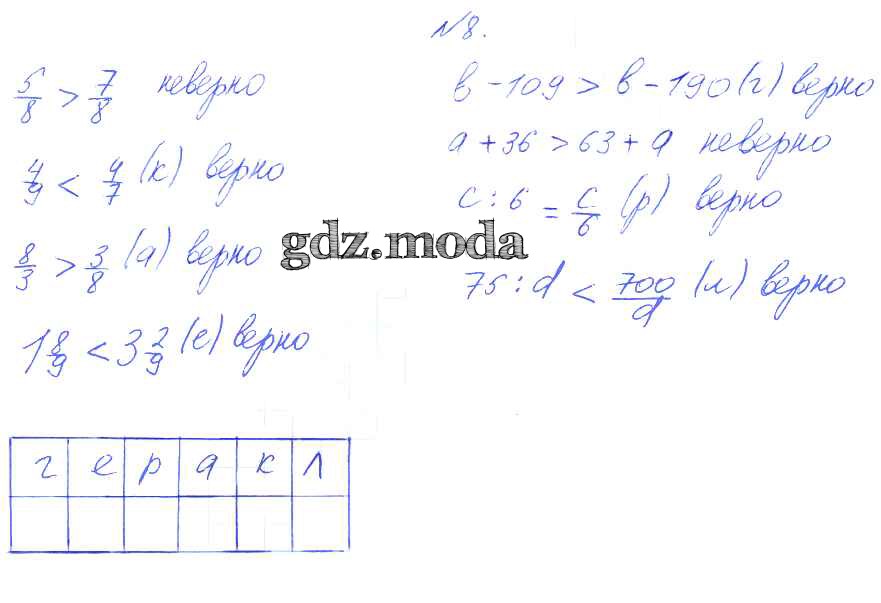 №8.
5/8 > 7/8 неверно
4/9 < 4/7 (к) верно
8/3 > 3/8 (а) верно
1 8/9 < 3 2/9 (е) верно
в - 109 > в - 190 (г) верно
а + 36 > 63 + а неверно
с : 6 = с/6 (р) верно
75 : d < 700/d (л) верно
gdz.moda
г е р а к л